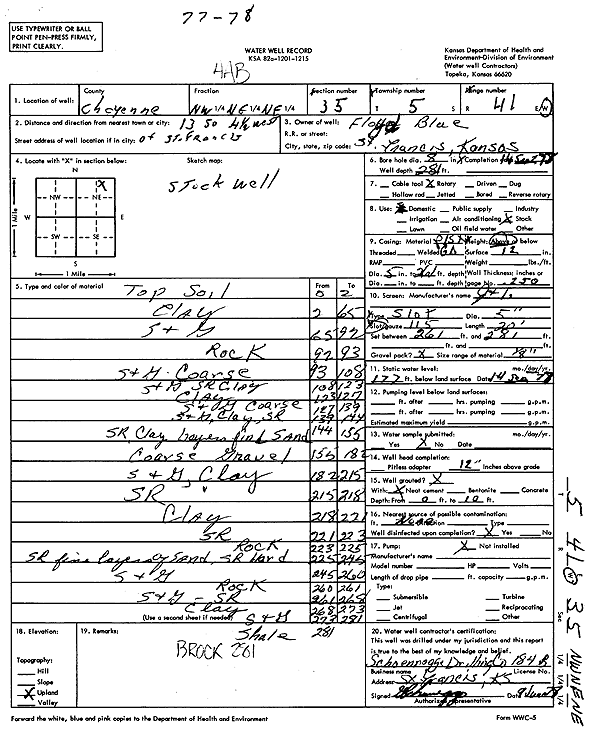 77-78
USE TYPEWRITER OR BALL
POINT PEN-PRESS FIRMLY,
PRINT CLEARLY.
WATER WELL RECORD
KSA 82a-1201-1215
Kansas Department of Health and
Environment-Division of Environment
(Water well Contractors)
Topeka, Kansas 66620
1. Location of well: County Cheyenne Fraction NW 1/4 NE 1/4 NE 1/4 Section number 35 Township number T 5 S Range number R 41 E/W
2. Distance and direction from nearest town or city: 13 So 4½ West
Street address of well location if in city: of St. Francis
3. Owner of well: Floyd Blue
R.R. or street:
City, state, zip code: St. Francis, Kansas
4. Locate with "X" in section below: Sketch map:
N
X
NW NE
W E
SW SE
S
1 Mile
1 Mile
Stock Well
6. Bore hole dia. 8 in. Completion date
Well depth 281 ft.
7. Cable tool X Rotary Driven Dug
Hollow rod Jetted Bored Reverse rotary
8. Use: Domestic Public supply Industry
Irrigation Air conditioning X Stock
Lawn Oil field water Other
9. Casing: Material Height: Above or below
Threaded Welded Surface 12 in.
RMP PVC Weight lbs./ft.
Dia. 5 in. to ft. depth Wall Thickness: inches or
Dia. in. to ft. depth gage No. .250
10. Screen: Manufacturer's name
Type Slot Dia. 5"
Slot/gauze 115 Length 20'
Set between 261 ft. and 281 ft.
ft. and ft.
Gravel pack? X Size range of material 1/8"
11. Static water level: mo./day/yr.
177 ft. below land surface Date 14 78
12. Pumping level below land surfaces:
ft. after hrs. pumping g.p.m.
ft. after hrs. pumping g.p.m.
Estimated maximum yield g.p.m.
13. Water sample submitted: mo./day/yr.
Yes X No Date
14. Well head completion:
Pitless adapter 12" Inches above grade
15. Well grouted? X
With: X Neat cement Bentonite Concrete
Depth: From 0 ft. to 10 ft.
16. Nearest source of possible contamination:
ft. None Direction Type
Well disinfected upon completion? X Yes No
17. Pump: X Not installed
Manufacturer's name
Model number HP Volts
Length of drop pipe ft. capacity g.p.m.
Type:
Submersible Turbine
Jet Reciprocating
Centrifugal Other
5. Type and color of material From To
Top Soil 0 2
Clay 2 65
S + G 65 92
Rock 92 93
S+G Coarse 93 108
S+G SR Clay 108 123
Clay 123 127
S+G Coarse 127 139
S+G, Clay, SR 139 144
SR, Clay layers fine Sand 144 155
Coarse Gravel 155 182
S + G, Clay 182 215
SR 215 218
Clay 218 221
SR 221 223
Rock 223 225
SR fine layers of Sand, SR Hard 225 245
S + G 245 260
Rock 260 261
S+G - SR 261 268
Clay 268 273
(Use a second sheet if needed) S + G 273 281
Shale 281
18. Elevation:
Topography:
Hill
Slope
X Upland
Valley
19. Remarks:
BROCK 281
20. Water well contractor's certification:
This well was drilled under my jurisdiction and this report
is true to the best of my knowledge and belief.
Schoenrogge Drilling Co 184 B
Business name License No.
Address St Francis, KS
Signed Date
Authorized representative
Forward the white, blue and pink copies to the Department of Health and Environment
Form WWC-5
T 5 R 41 W Sec 35 NW NE NE
1/4 1/4 1/4